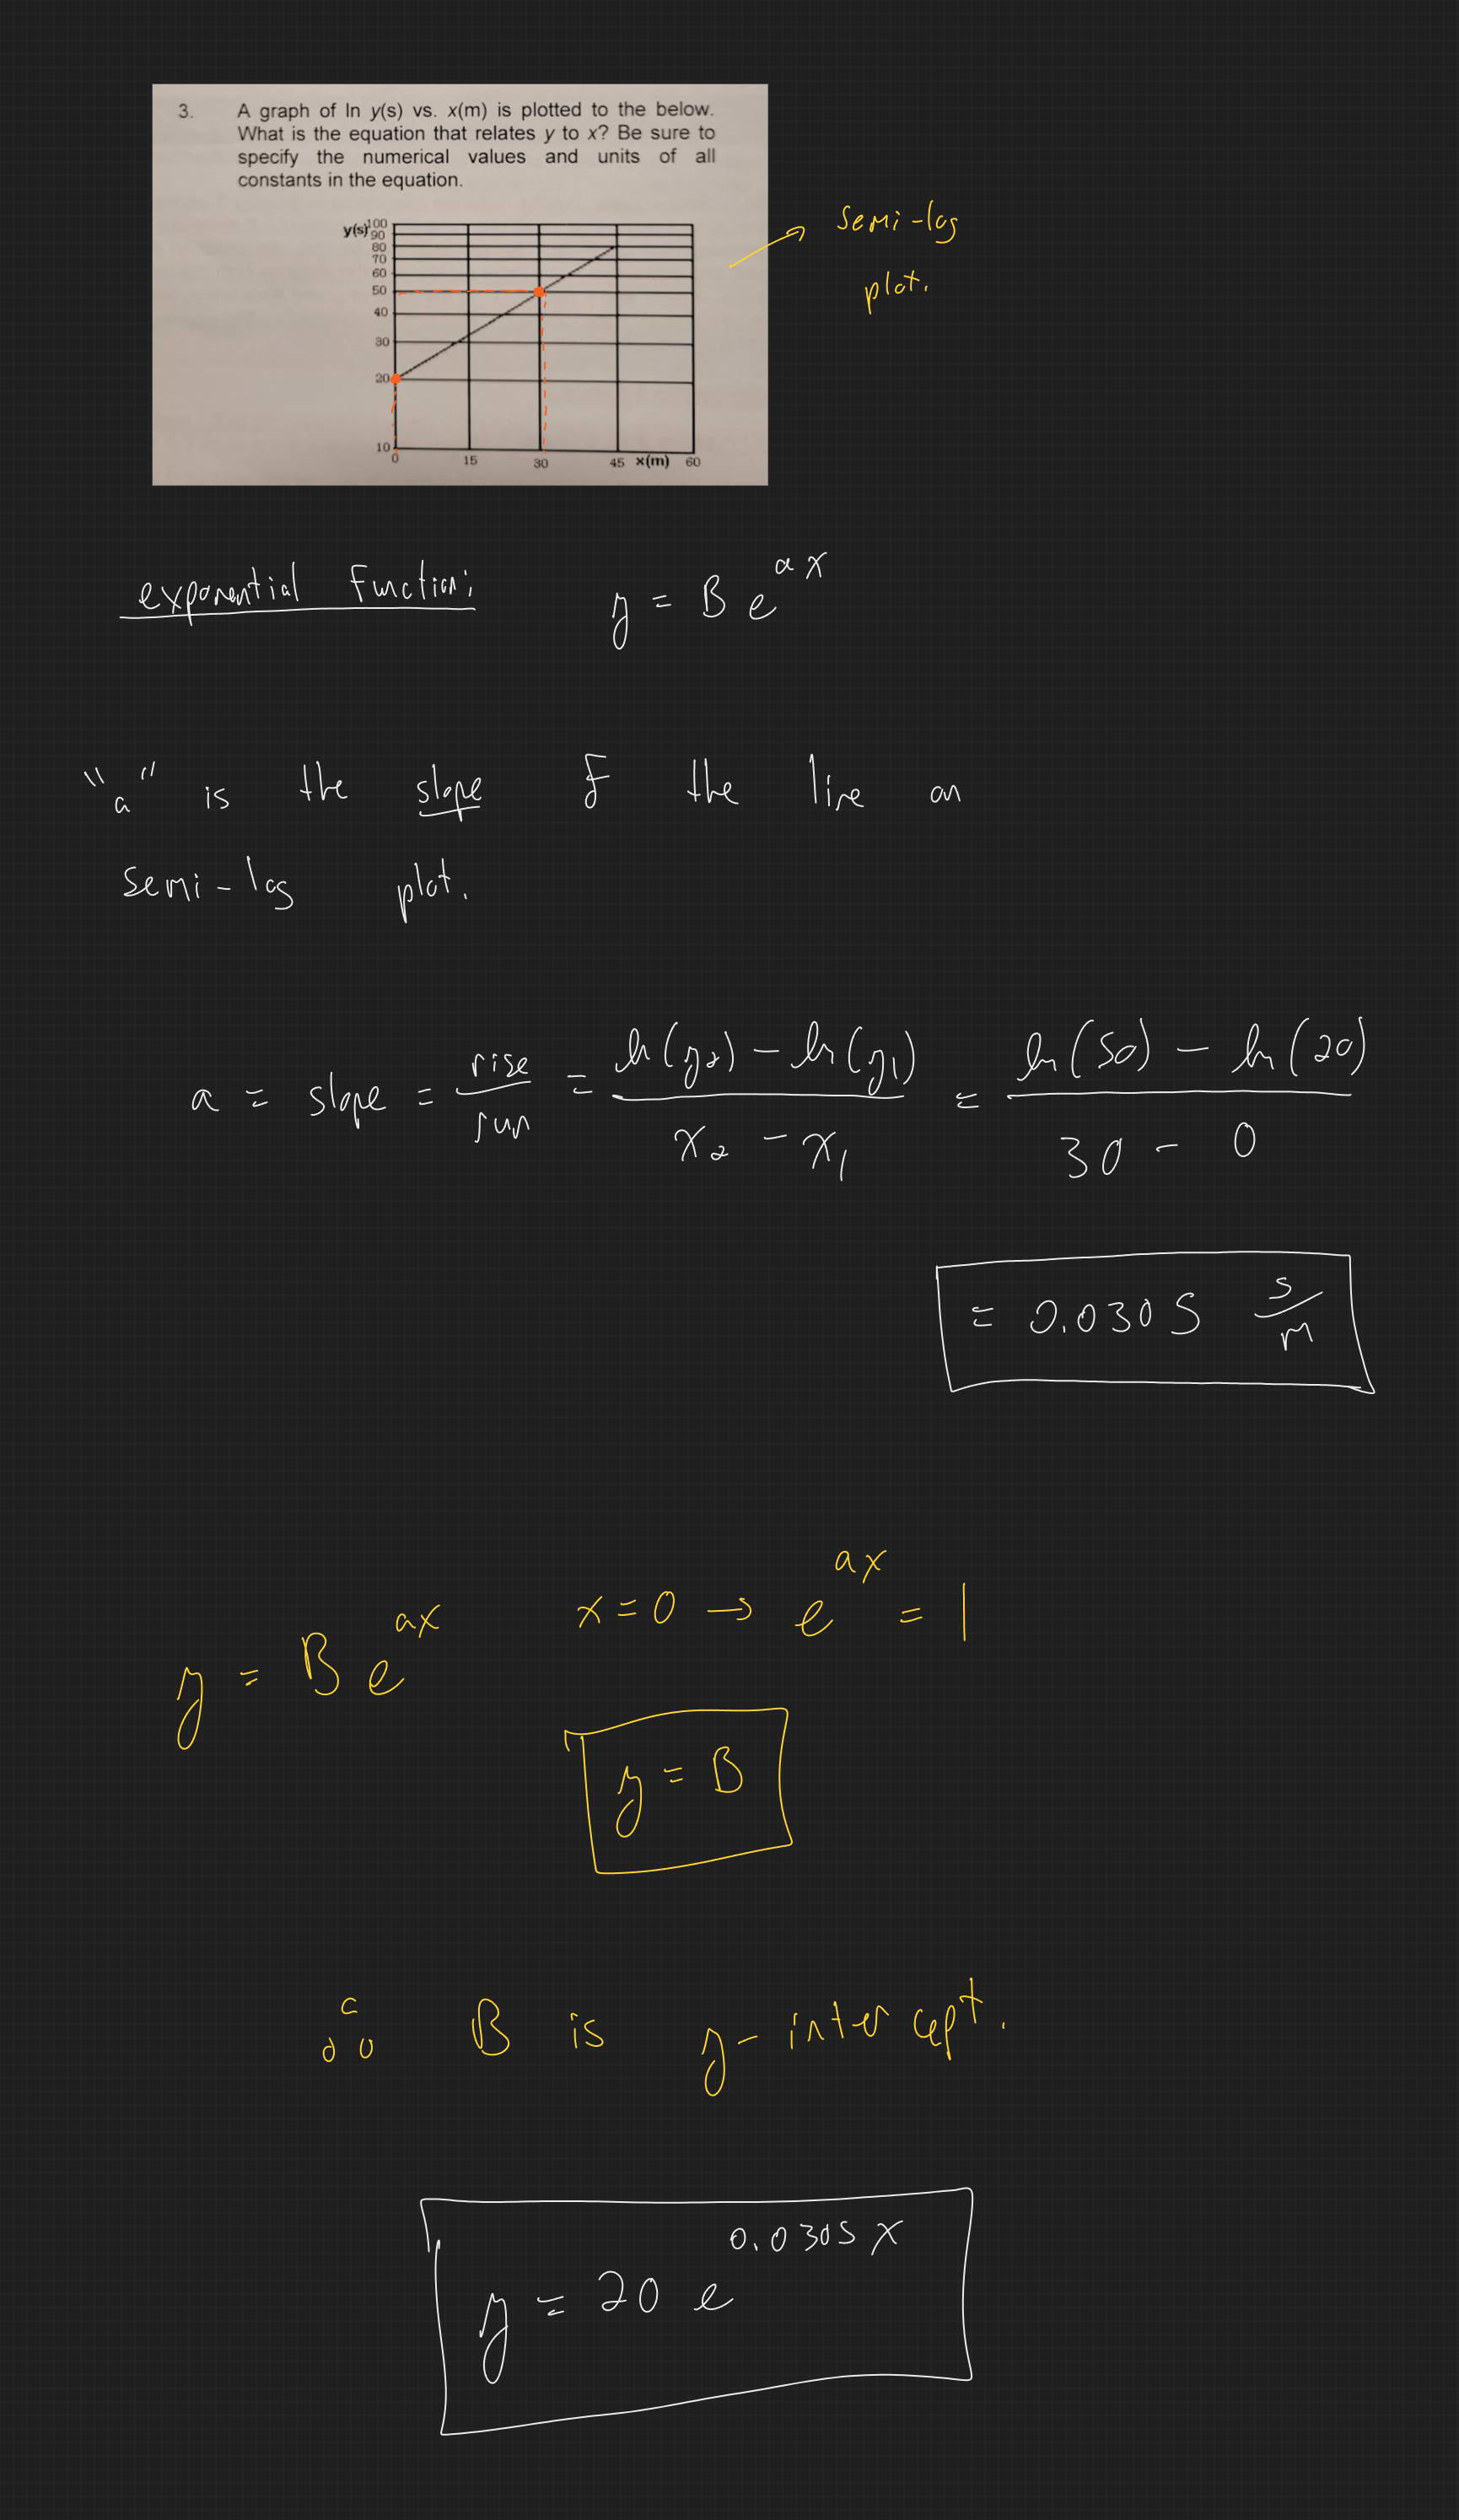 3. A graph of ln y(s) vs. x(m) is plotted to the below.
What is the equation that relates y to x? Be sure to
specify the numerical values and units of all
constants in the equation.
y(s)
100
90
80
70
60
50
40
30
20
10
0 15 30 45 x(m) 60
semi-log
plot.
exponential function: y = B e^{ax}
"a" is the slope of the line on
semi-log plot.
a = slope = rise/run = (ln(y₂) - ln(y₁))/(x₂ - x₁) = (ln(50) - ln(20))/(30 - 0)
= 0.0305 s/m
y = B e^{ax} x=0 → e^{ax} = 1
y = B
∴ B is y-intercept.
y = 20 e^{0.0305x}